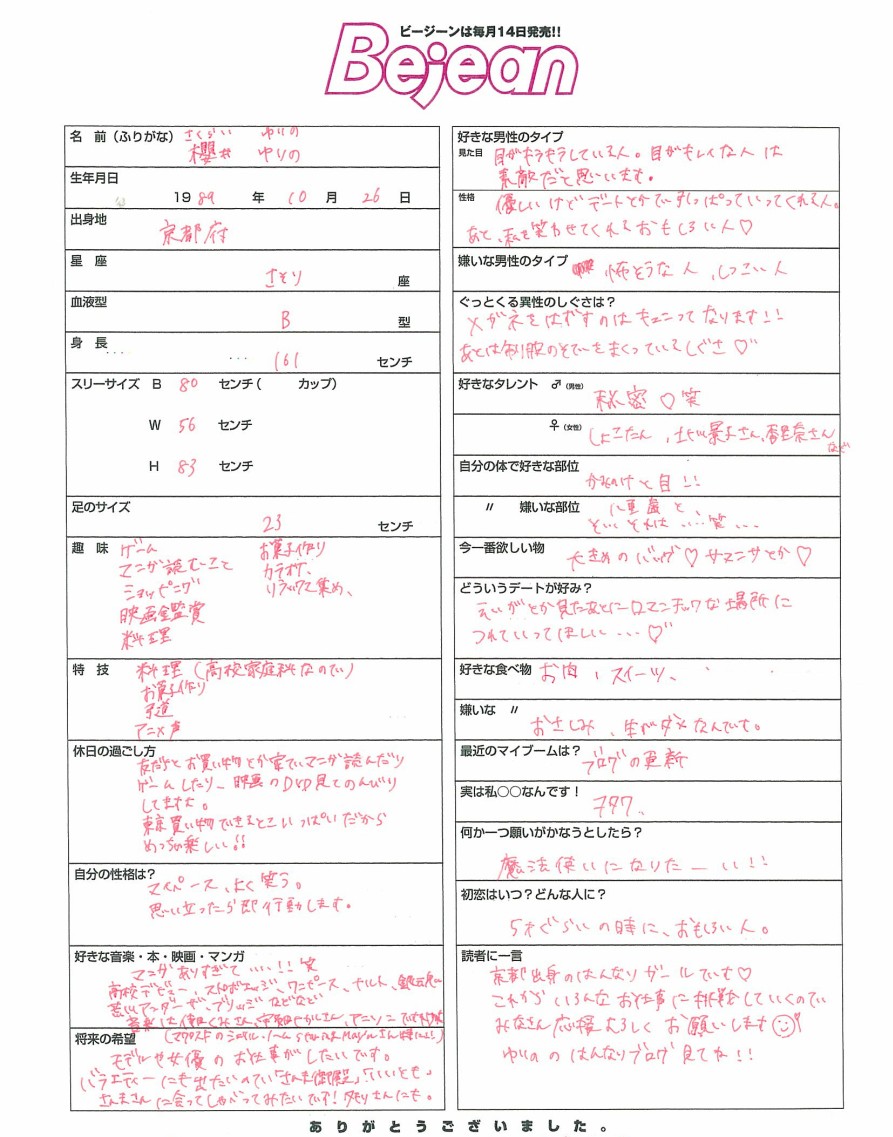 ビージーンは毎月14日発売!!
Bejean
名 前(ふりがな) さくらい ゆりの
櫻井 ゆりの
生年月日
1989年 10月 26日
出身地
京都府
星 座
さそり 座
血液型
B 型
身 長
161 センチ
スリーサイズ B 80 センチ( カップ)
W 56 センチ
H 83 センチ
足のサイズ
23 センチ
趣 味 ゲーム お菓子作り
マンガ読むこと カラオケ、
ショッピング リラックマ集め、
映画鑑賞
料理
特 技 料理(高校家庭科なので)
お菓子作り
弓道
アニメ声
休日の過ごし方
友だちとお買い物とか家でマンガ読んだり
ゲームしたり、映画のDVD見てのんびり
してますよ。
東京買い物できるとこいっぱいだから
めっちゃ楽しい!!
自分の性格は?
マイペース、よく笑う。
思い立ったら即行動します。
好きな音楽・本・映画・マンガ
マンガありすぎて…!!笑
高校デビュー、ワンピース、ナルト、銀魂
ブリーチなどなど
音楽は アニソン
将来の希望
モデルや女優のお仕事がしたいです。
バラエティーにも出たいので「さんま御殿」「いいとも」
さんまさんに会ってしゃべってみたいです!タモリさんにも。
好きな男性のタイプ
見た目 目がキラキラしている人。目がキレイな人は
素敵だと思います。
性格 優しいけどデートとかで引っぱっていってくれる人。
あと、私を笑わせてくれるおもしろい人♡
嫌いな男性のタイプ 怖そうな人、しつこい人
ぐっとくる異性のしぐさは?
メガネをはずすのはキュンってなります!!
あとは制服のそでをまくっているしぐさ♡
好きなタレント ♂(男性) 秘密♡笑
♀(女性) しょこたん、北川景子さん、香里奈さん など
自分の体で好きな部位
かみのけと目!!
〃 嫌いな部位 八重歯と、
それは…笑…
今一番欲しい物
大きめのバッグ♡サマンサとか♡
どういうデートが好み?
えいがとか見たあとにロマンチックな場所に
つれていってほしい…♡
好きな食べ物 お肉、スイーツ、
嫌いな 〃
おさしみ、生がダメなんです。
最近のマイブームは?
ブログの更新
実は私○○なんです!
何か一つ願いがかなうとしたら?
魔法使いになりたーい!!
初恋はいつ?どんな人に?
5才ぐらいの時に、おもしろい人。
読者に一言
京都出身のはんなりガールです♡
これからいろんなお仕事に挑戦していくので
みなさん応援よろしくお願いします
ゆりののはんなりブログ見てね!!
ありがとうございました。